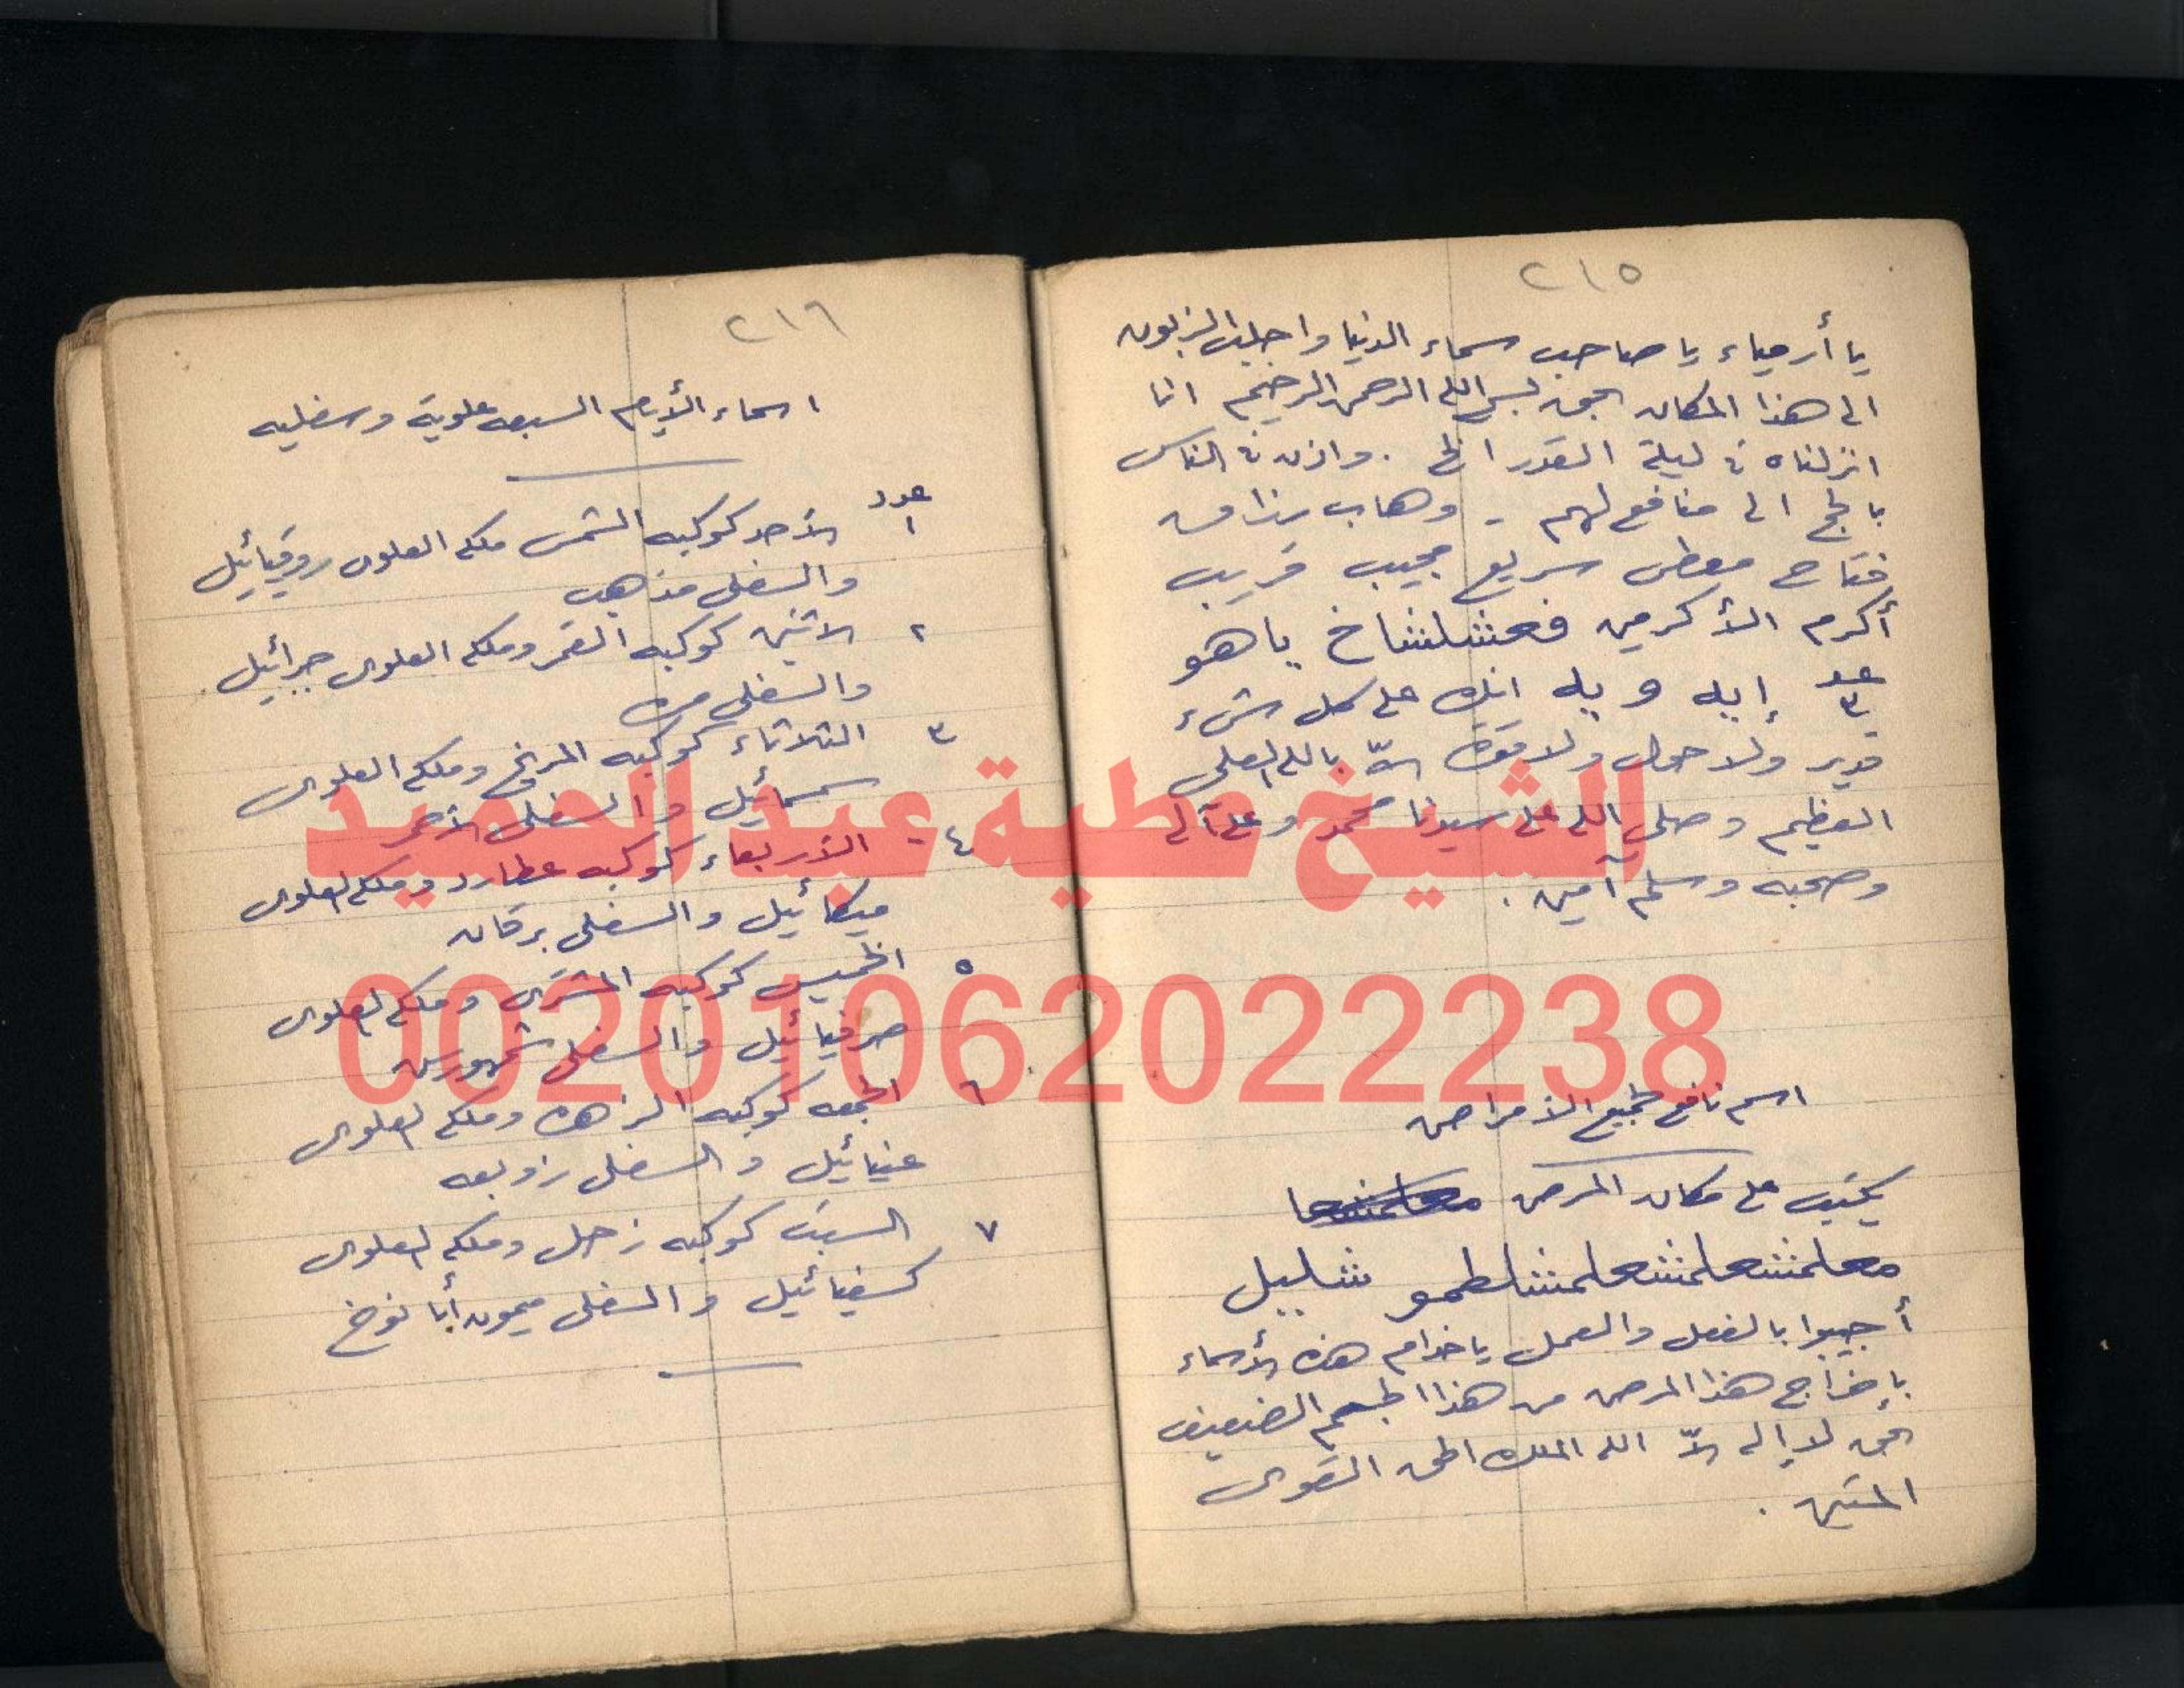 ٢١٥
يا أرمياء يا صاحب سماء الدنيا واجلب الزبون
الى هذا المكان بحق بسم الله الرحمن الرحيم انا
انزلناه فى ليلة القدر الخ . واذن فى الناس
بالحج الى منافع لهم - وهاب رزاق
فتاح معطى سريع مجيب قريب
أكرم الأكرمين فعشلشاخ ياهو
عدد ٣ إيه ويه انك على كل شىء
قدير ولا حول ولا قوة إلاّ بالله العلى
العظيم وصلى الله على سيدنا محمد وعلى آله
وصحبه وسلم آمين .
اسم نافع لجميع الأمراض
يكتب على مكان المرض
معلمشعلمشعلمشلطمو شلبيل
أجيبوا بالفعل والعمل ياخدام هذه الأسماء
بإخراج هذا المرض من هذا الجسم الضعيف
بحق لا إله إلاّ الله الملك الحق القوى
المتين .
٢١٦
اسماء الأيام السبعه علوية وسفليه
عدد
١ الأحد كوكبه الشمس ملكه العلوى روقيائيل
والسفلى مذهب
٢ الاثنين كوكبه القمر وملكه العلوى جبرائيل
والسفلى مره
٣ الثلاثاء كوكبه المريخ وملكه العلوى
سمسمائيل والسفلى الأحمر
٤ الأربعاء كوكبه عطارد وملكه العلوى
ميكائيل والسفلى برقان
٥ الخميس كوكبه المشترى وملكه العلوى
صرفيائيل والسفلى شمهورش
٦ الجمعه كوكبه الزهره وملكه العلوى
عنيائيل والسفلى زوبعه
٧ السبت كوكبه زحل وملكه العلوى
كسفيائيل والسفلى ميمون أبا نوخ
الشيخ عطية عبد الحميد
00201062022238